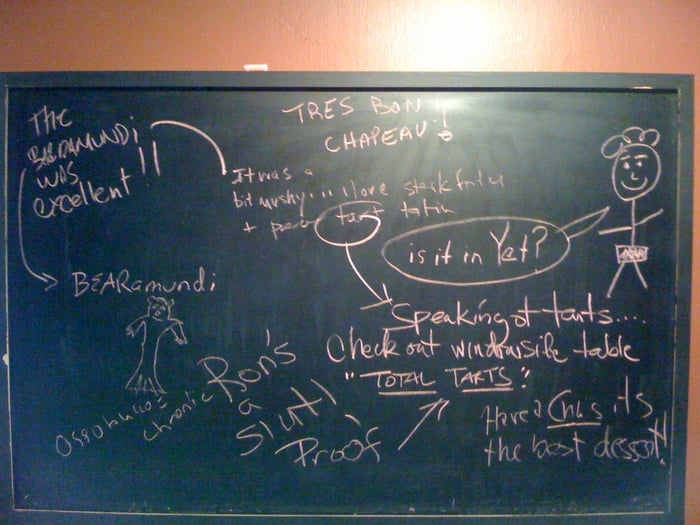 The
BARAMUNDi
was
excellent!!
TRES BON!!
CHAPEAU!
It was a
bit mushy... I love steak frites
+ pear tart tatin
is it in Yet?
BEARamundi
Speaking of tarts....
Check out windowside table
"TOTAL TARTS"
Ron's
a
Slut!
Proof
chronic
Have a
its
the best dessert!!